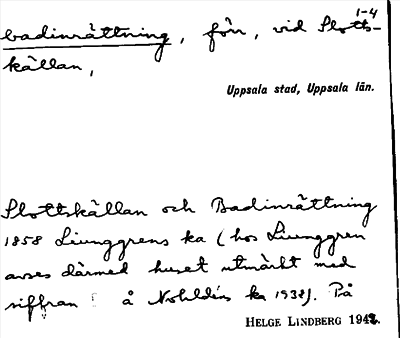 1-4
badinrättning, förr, vid Slotts-
källan,
Uppsala stad, Uppsala län.
Slottskällan och Badinrättning
1858 Ljunggrens ka (hos Ljunggren
avses därmed huset utmärkt med
siffran å ka 1932). På
HELGE LINDBERG 1942.